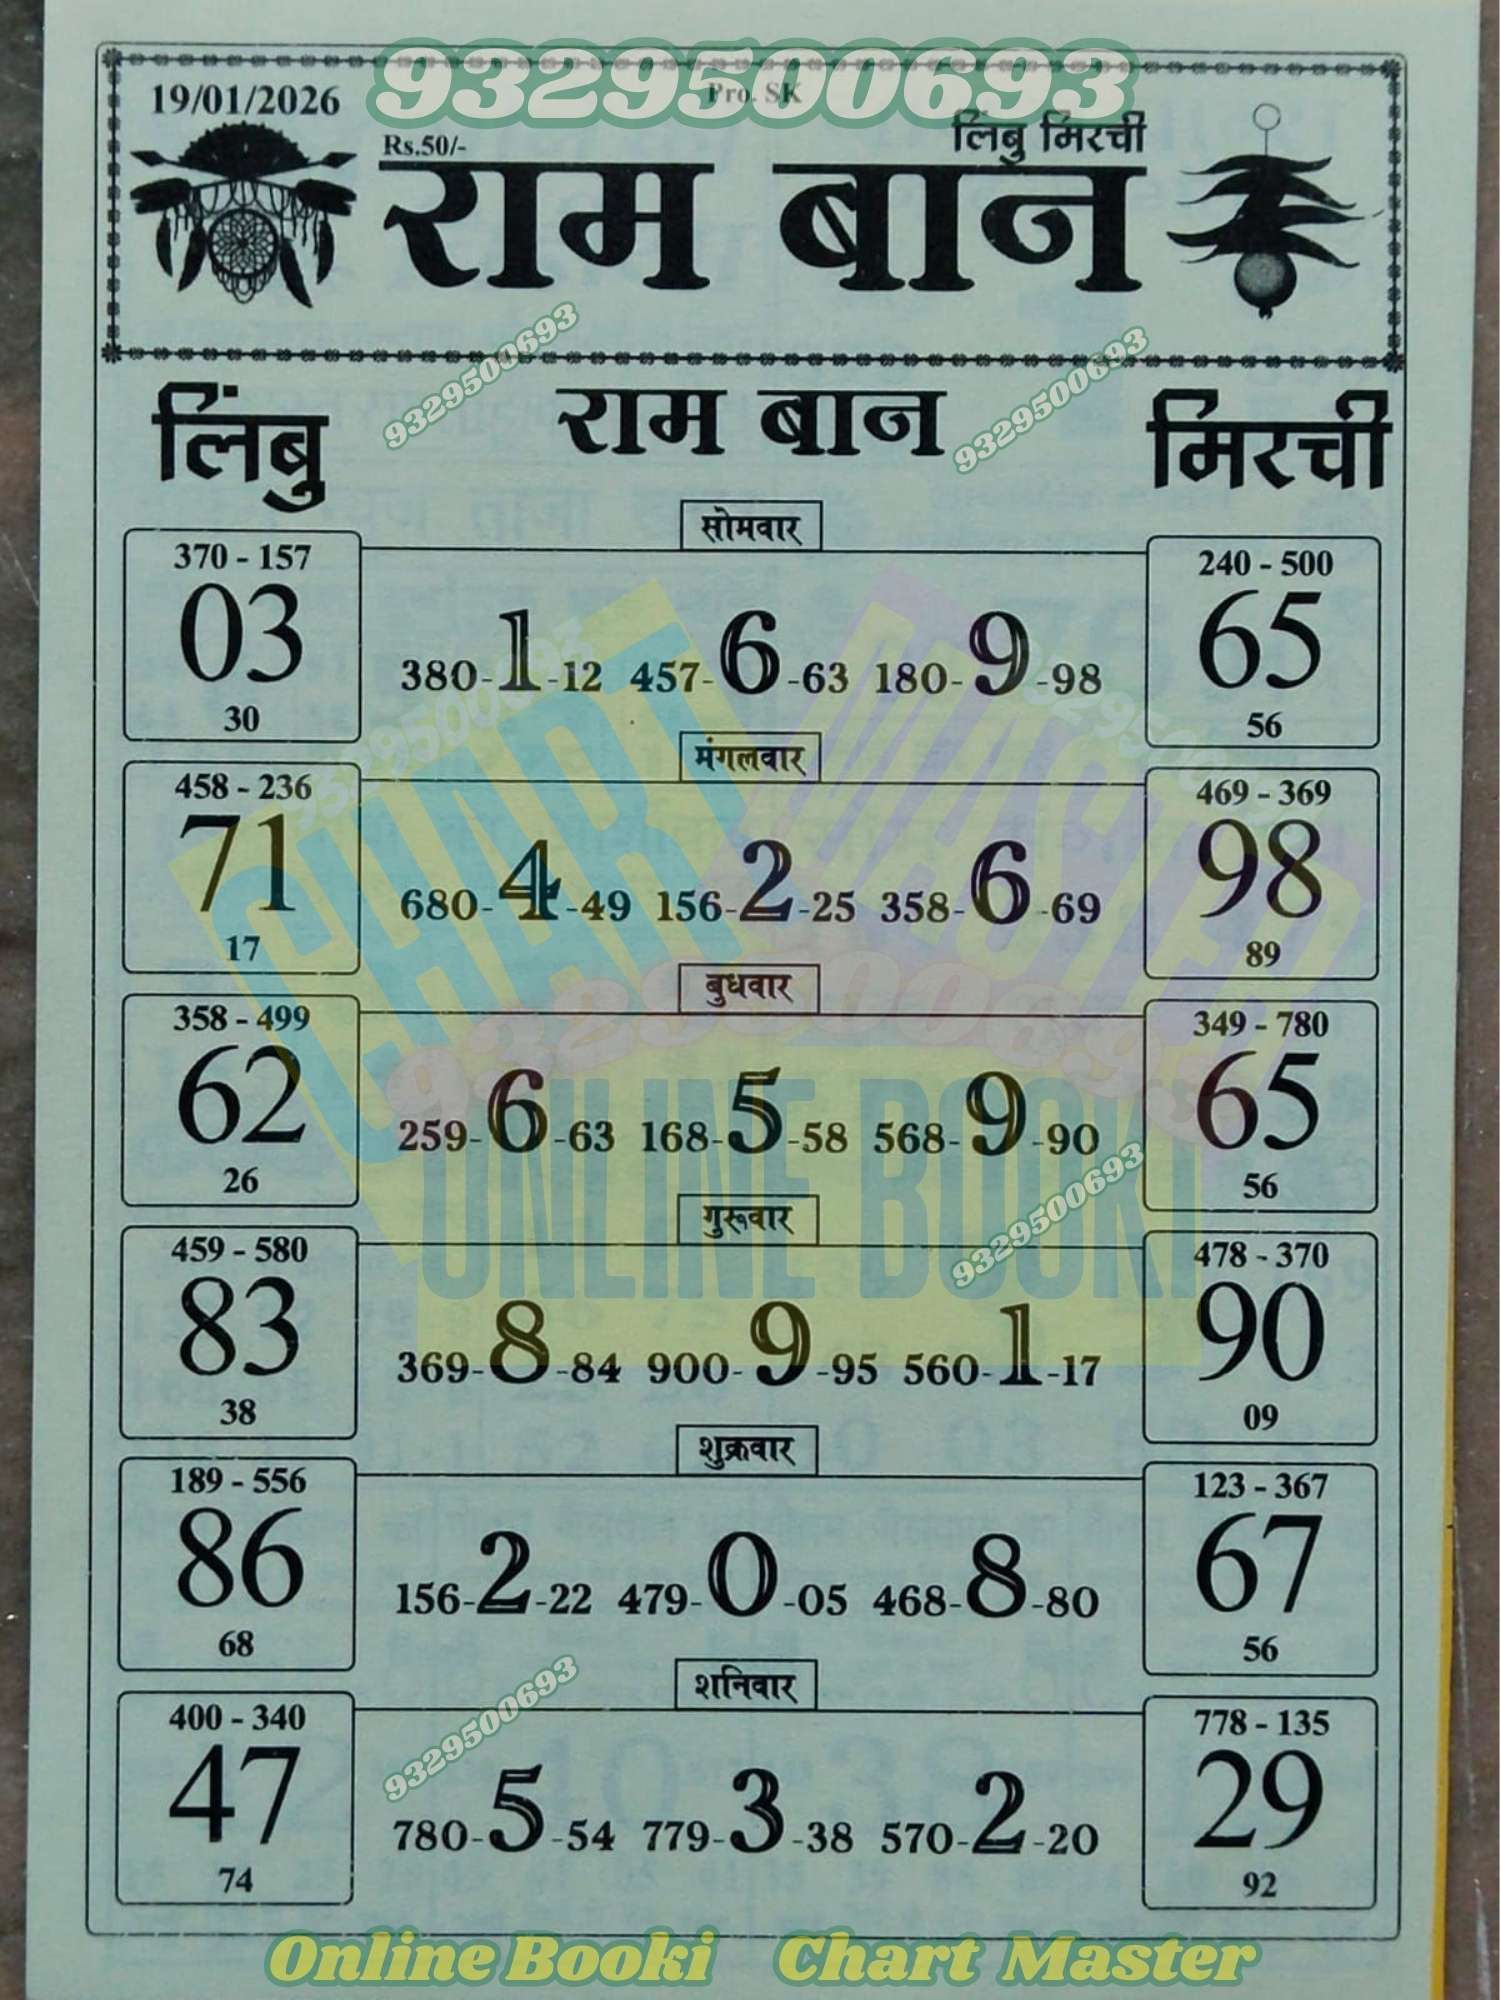 9329500693
19/01/2026
Pro. SK
Rs.50/-
लिंबु मिरची
राम बान
9329500693
9329500693
लिंबु
राम बान
मिरची
सोमवार
370 - 157
03
30
380-1-12 457-6-63 180-9-98
240 - 500
65
56
मंगलवार
458 - 236
71
17
680-4-49 156-2-25 358-6-69
469 - 369
98
89
CHART MASTER
9329500693
9329500693
बुधवार
358 - 499
62
26
259-6-63 168-5-58 568-9-90
349 - 780
65
56
9329500693
ONLINE BOOKI
9329500693
गुरूवार
459 - 580
83
38
369-8-84 900-9-95 560-1-17
478 - 370
90
09
शुक्रवार
189 - 556
86
68
156-2-22 479-0-05 468-8-80
123 - 367
67
56
शनिवार
9329500693
400 - 340
47
74
780-5-54 779-3-38 570-2-20
778 - 135
29
92
Online Booki Chart Master